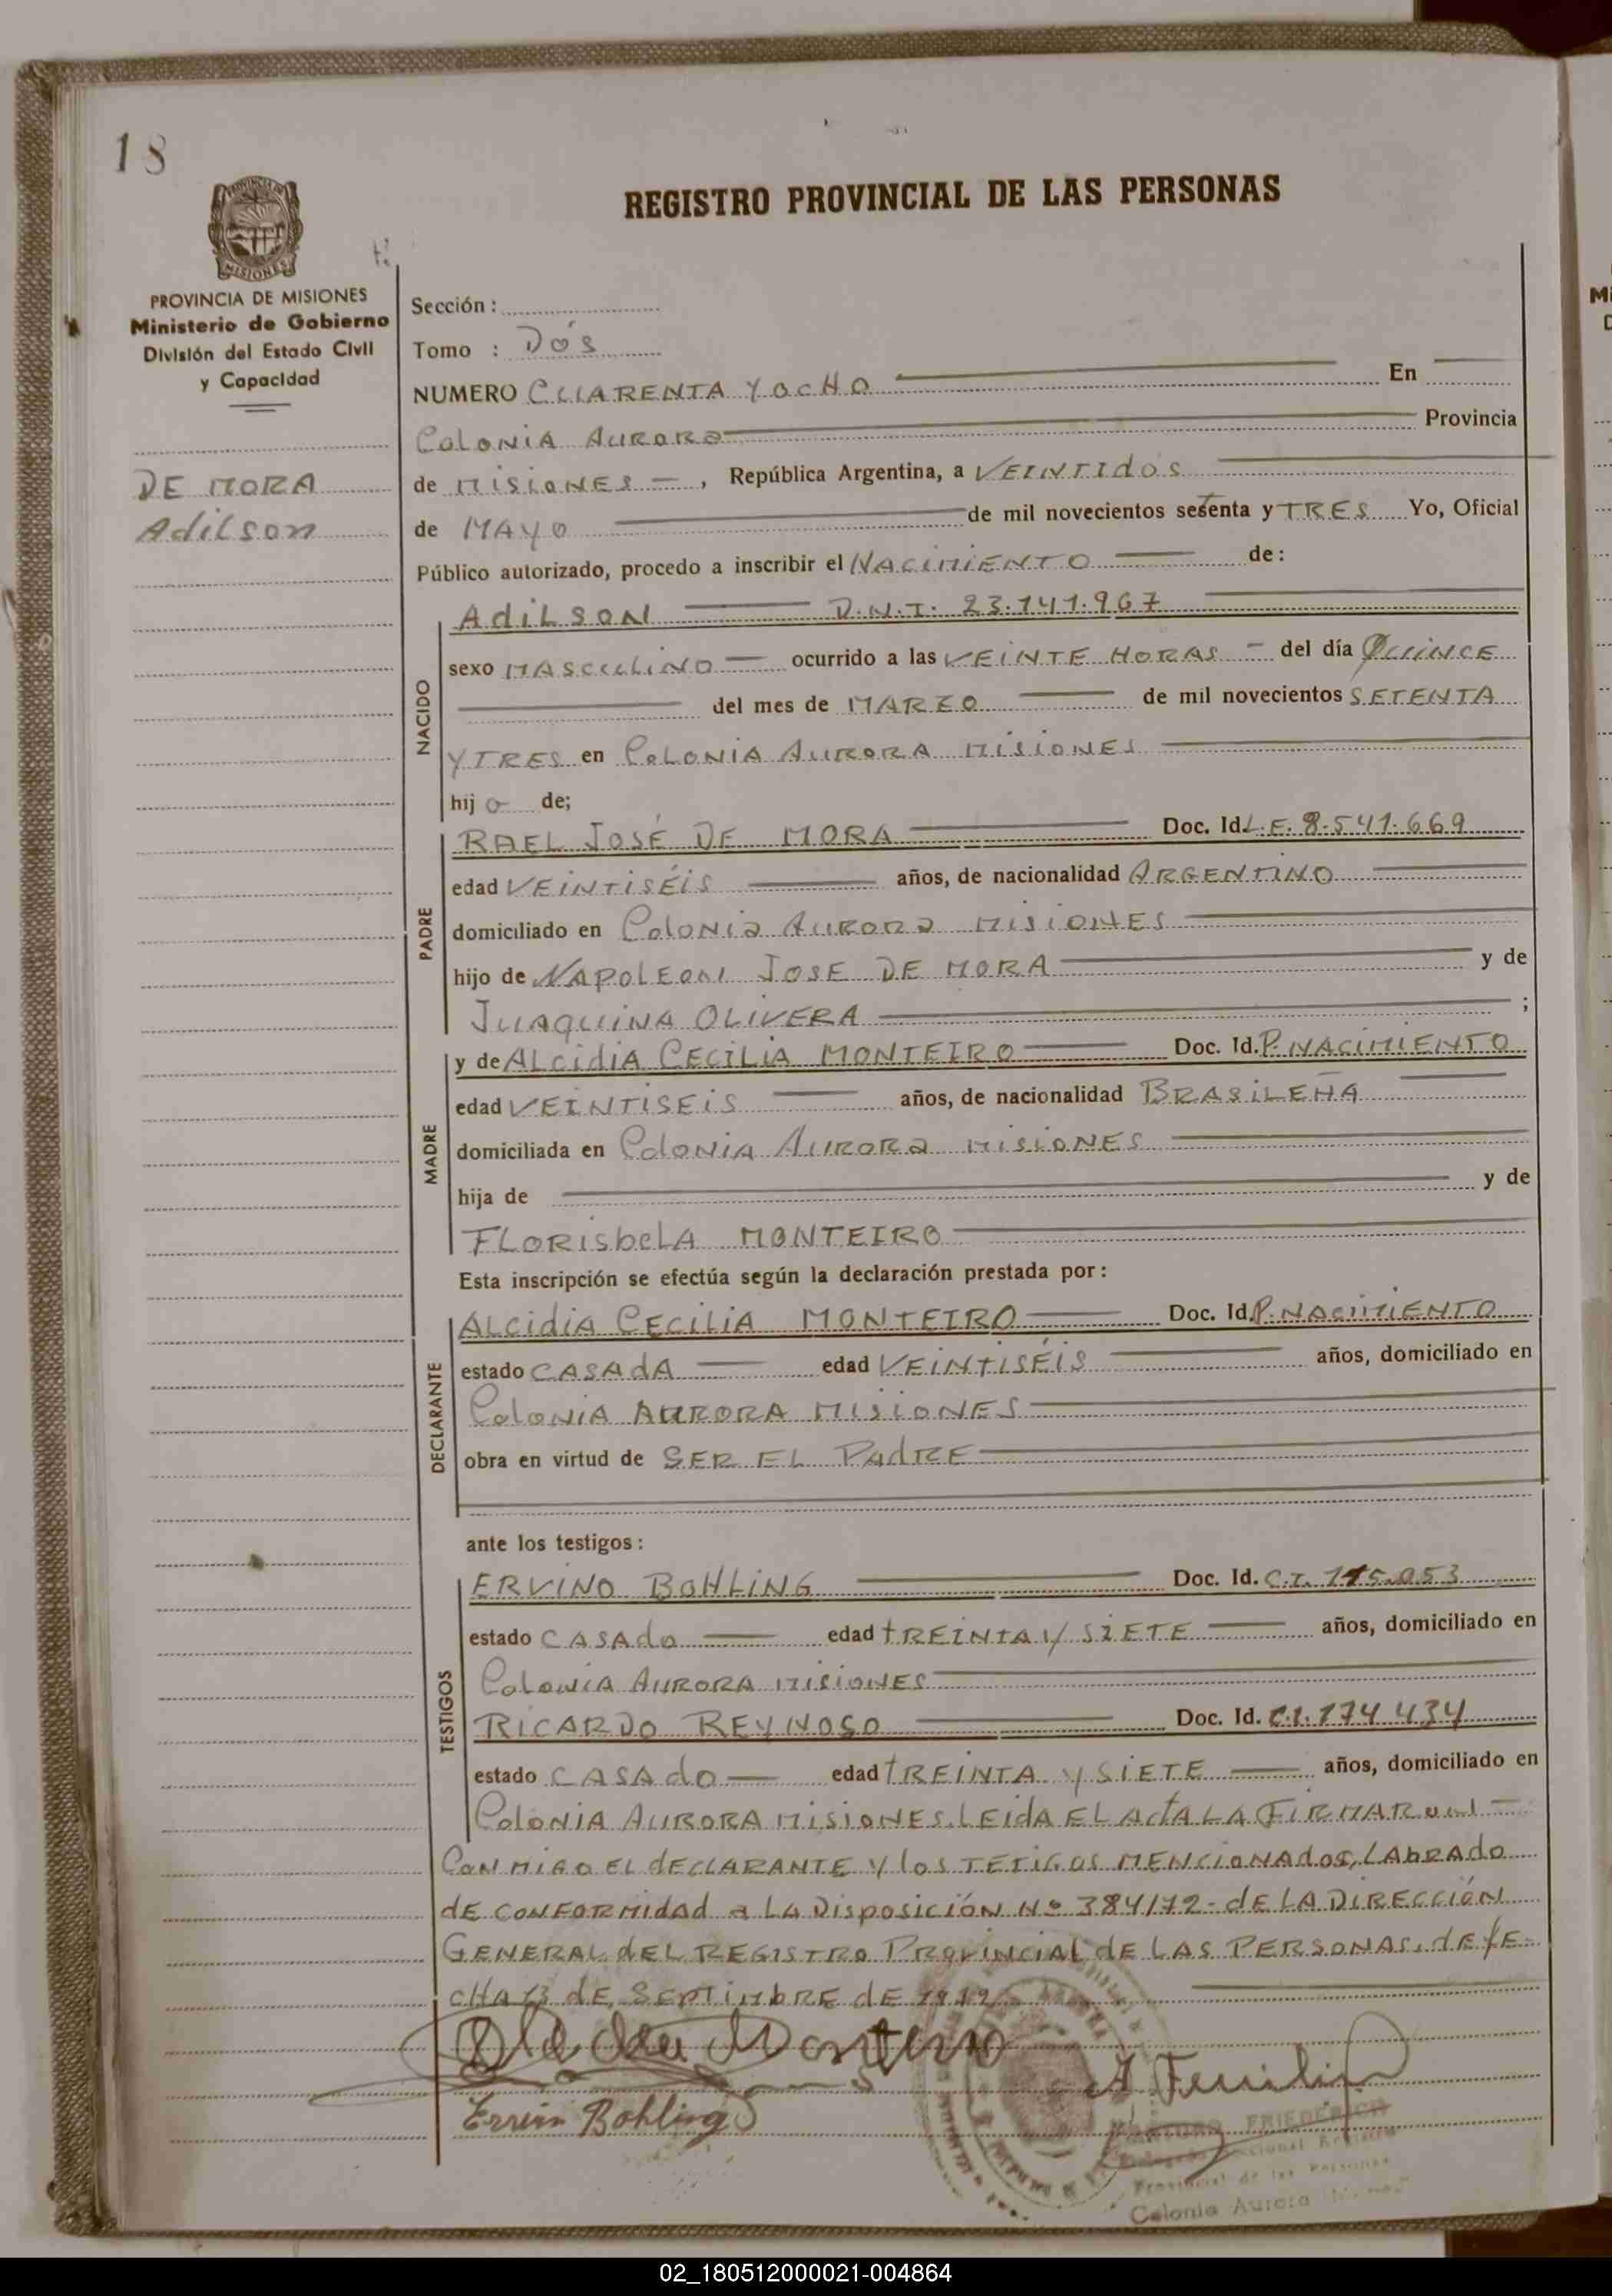 18
REGISTRO PROVINCIAL DE LAS PERSONAS
MISIONES
PROVINCIA DE MISIONES
Ministerio de Gobierno
División del Estado Civil
y Capacidad
DE MORA
Adilson
Sección :
Tomo : Dós
NUMERO CUARENTA Y OCHO En
COLONIA AURORA Provincia
de MISIONES , República Argentina, a VEINTIdóS
de MAYO de mil novecientos setenta y TRES Yo, Oficial
Público autorizado, procedo a inscribir el NACIMIENTO de:
NACIDO
AdiLSON D.N.I. 23.141.967
sexo MASCULINO ocurrido a las VEINTE HORAS - del día QUINCE
del mes de MARZO de mil novecientos SETENTA
Y TRES en COLONIA AURORA MISIONES
hij o de;
PADRE
RAEL JOSÉ DE MORA Doc. Id. L.E. 8.541.669
edad VEINTISÉIS años, de nacionalidad ARGENTINO
domiciliado en COLONIA AURORA MISIONES
hijo de NAPOLEON JOSE DE MORA y de
JUAQUINA OLIVERA ;
MADRE
y de ALCIDIA CECILIA MONTEIRO Doc. Id. P. NACIMIENTO
edad VEINTISEIS años, de nacionalidad BRASILEÑA
domiciliada en COLONIA AURORA MISIONES
hija de y de
FLORISbELA MONTEIRO
Esta inscripción se efectúa según la declaración prestada por:
DECLARANTE
ALCIdIA CECILIA MONTEIRO Doc. Id. P. NACIMIENTO
estado CASAdA edad VEINTISÉIS años, domiciliado en
COLONIA AURORA MISIONES
obra en virtud de SER EL PAdRE
ante los testigos:
TESTIGOS
ERVINO BOHLING Doc. Id. C.I. 115.053
estado CASAdo edad tREINTA y SIETE años, domiciliado en
COLONIA AURORA MISIONES
RICARDO REYNOSO Doc. Id. C.I. 174 434
estado CASAdo edad tREINTA y SIETE años, domiciliado en
COLONIA AURORA MISIONES. LEIdA EL ActA LA FIRMARON
CON MIGO EL dECLARANTE y LOS TETIGOS MENCIONAdOS, LAbRADO
dE CONFORMIdAd a LA DISPOSICIÓN Nº 384/72 - dE LA DIRECCIÓN
GENERAL dEL REGISTRO PROVINCIAL dE LAS PERSONAS. dE fE-
CHA 13 dE SEPTIMbRE dE 1972
Erwin Bohling
FRIEDERICH
Provincial de las Personas
Colonia Aurora
02_180512000021-004864